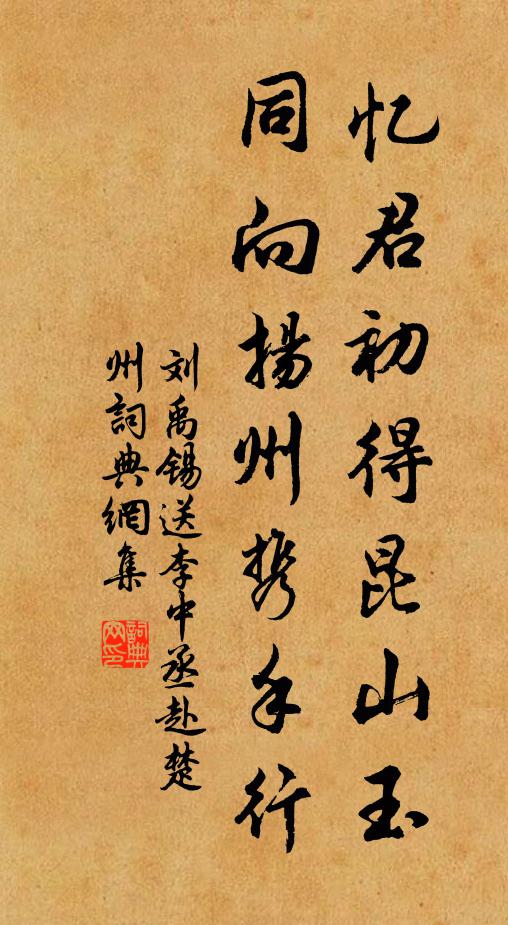 忆君初得昆山玉
同向揚州携手行
刘禹錫送李中丞赴楚
州詞典網集
詞典网印